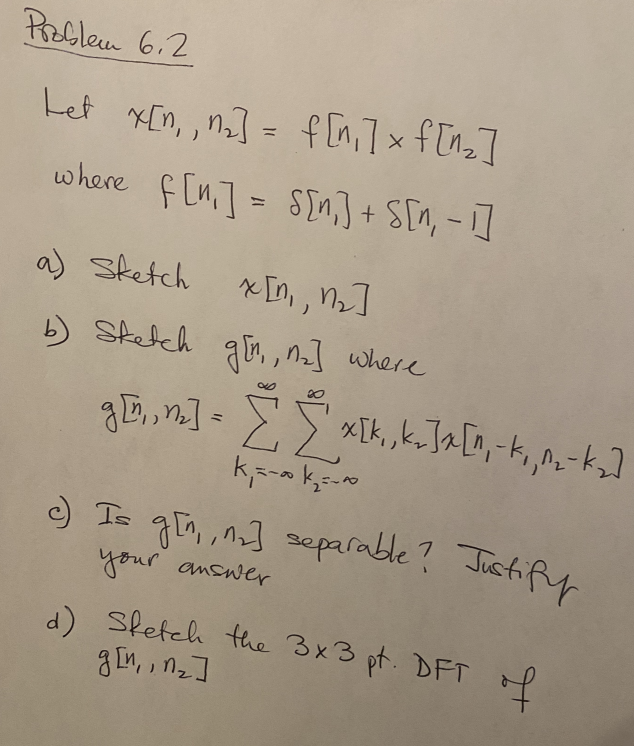 Problem 6.2
Let x[n₁, n₂] = f[n₁] × f[n₂]
where f[n₁] = δ[n₁] + δ[n₁ - 1]
a) Sketch x[n₁, n₂]
b) Sketch g[n₁, n₂] where
g[n₁, n₂] = ∞∑k₁=-∞ ∞∑k₂=-∞ x[k₁, k₂] x[n₁-k₁, n₂-k₂]
c) Is g[n₁, n₂] separable? Justify
your answer
d) Sketch the 3x3 pt. DFT of
g[n₁, n₂]